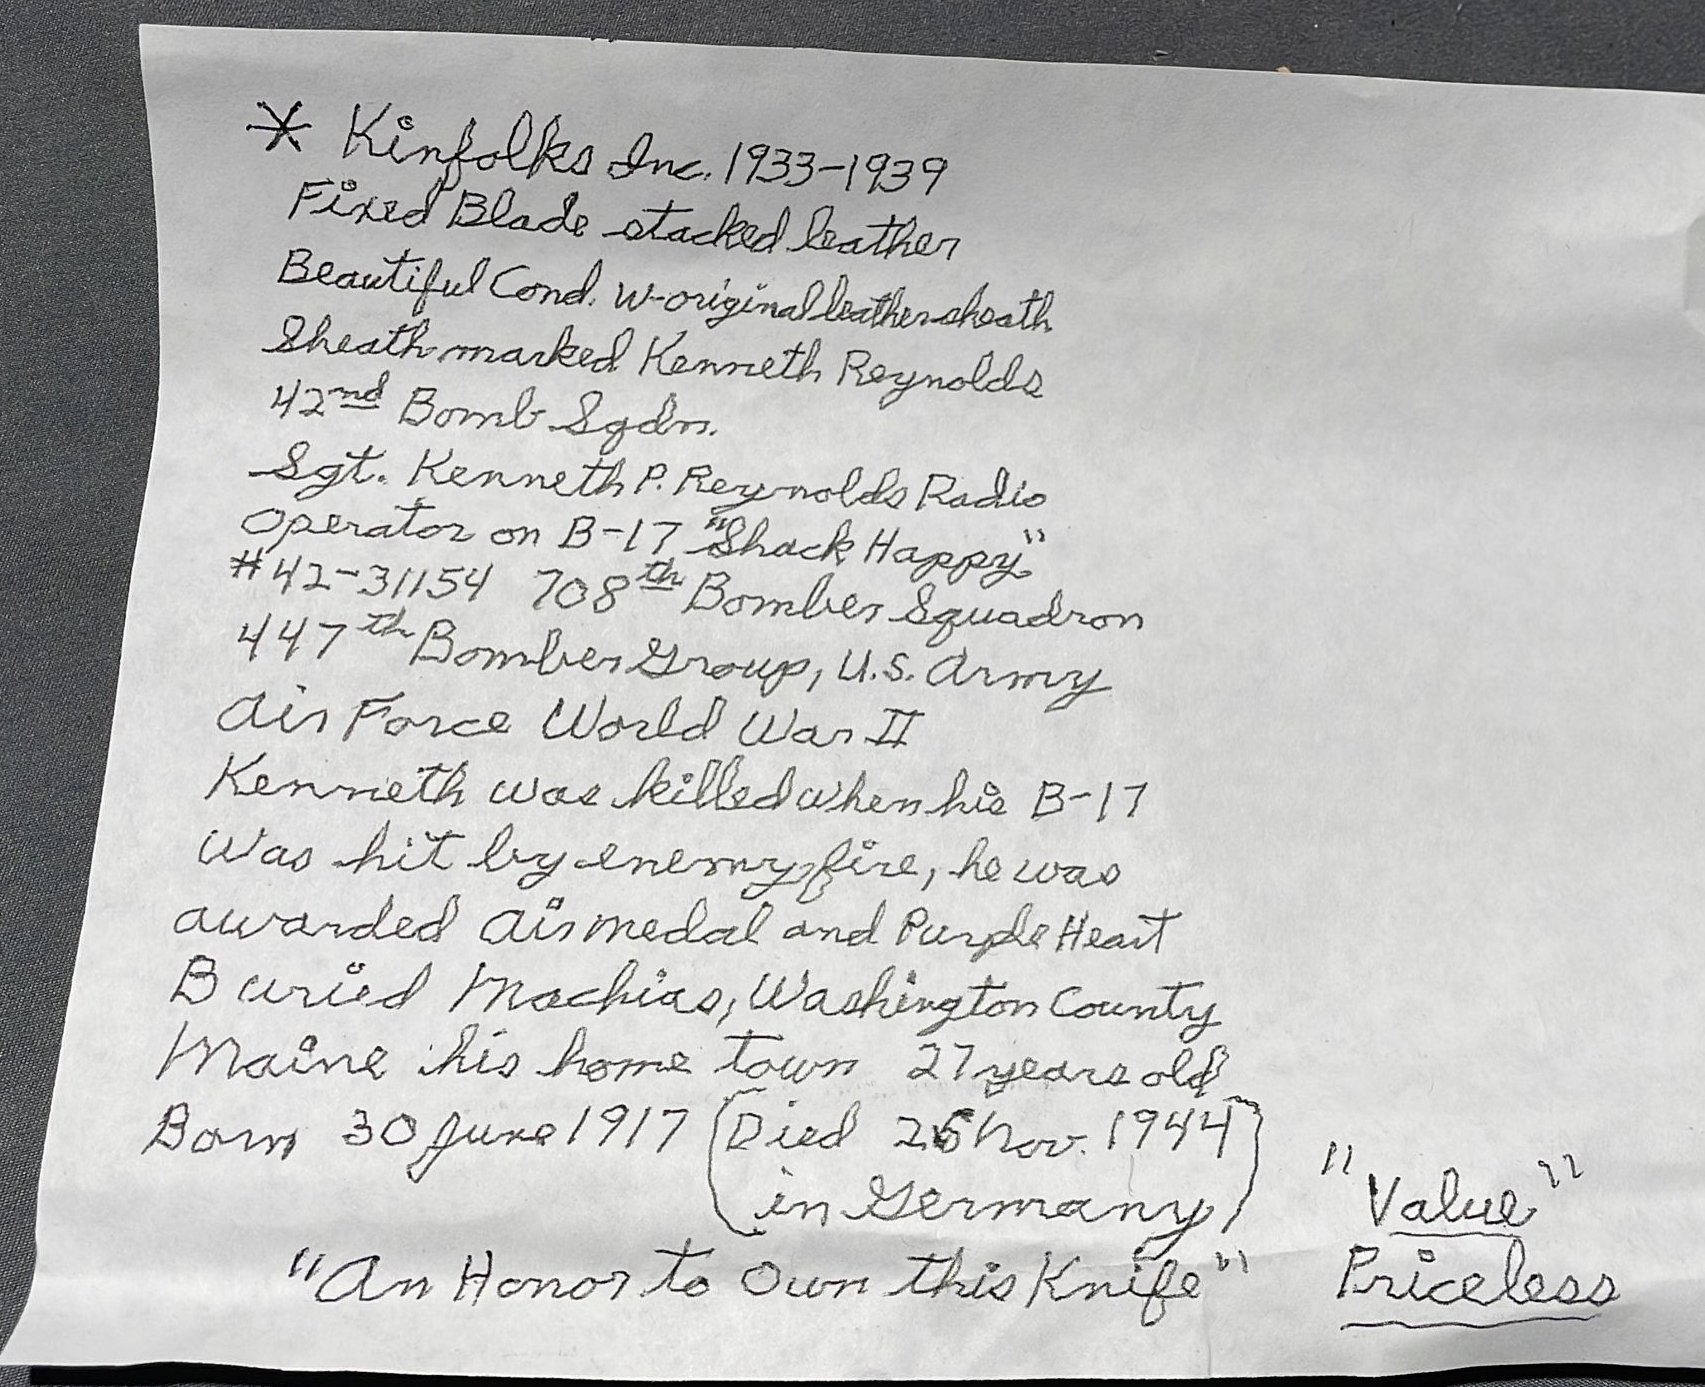 * Kinfolks Inc. 1933-1939
Fixed Blade stacked leather
Beautiful Cond. W-original leather sheath
Sheath marked Kenneth Reynolds
42nd Bomb Sqdn.
Sgt. Kenneth P. Reynolds Radio
Operator on B-17 "Shack Happy"
#42-31154 708th Bomber Squadron
447th Bomber Group, U.S. Army
Air Force World War II
Kenneth was killed when his B-17
Was hit by enemy fire, he was
awarded Air medal and Purple Heart
Buried Machias, Washington County
Maine his home town 27 years old
Born 30 June 1917 (Died 26 Nov. 1944
in Germany)
"An Honor to Own this Knife"
"Value"
Priceless